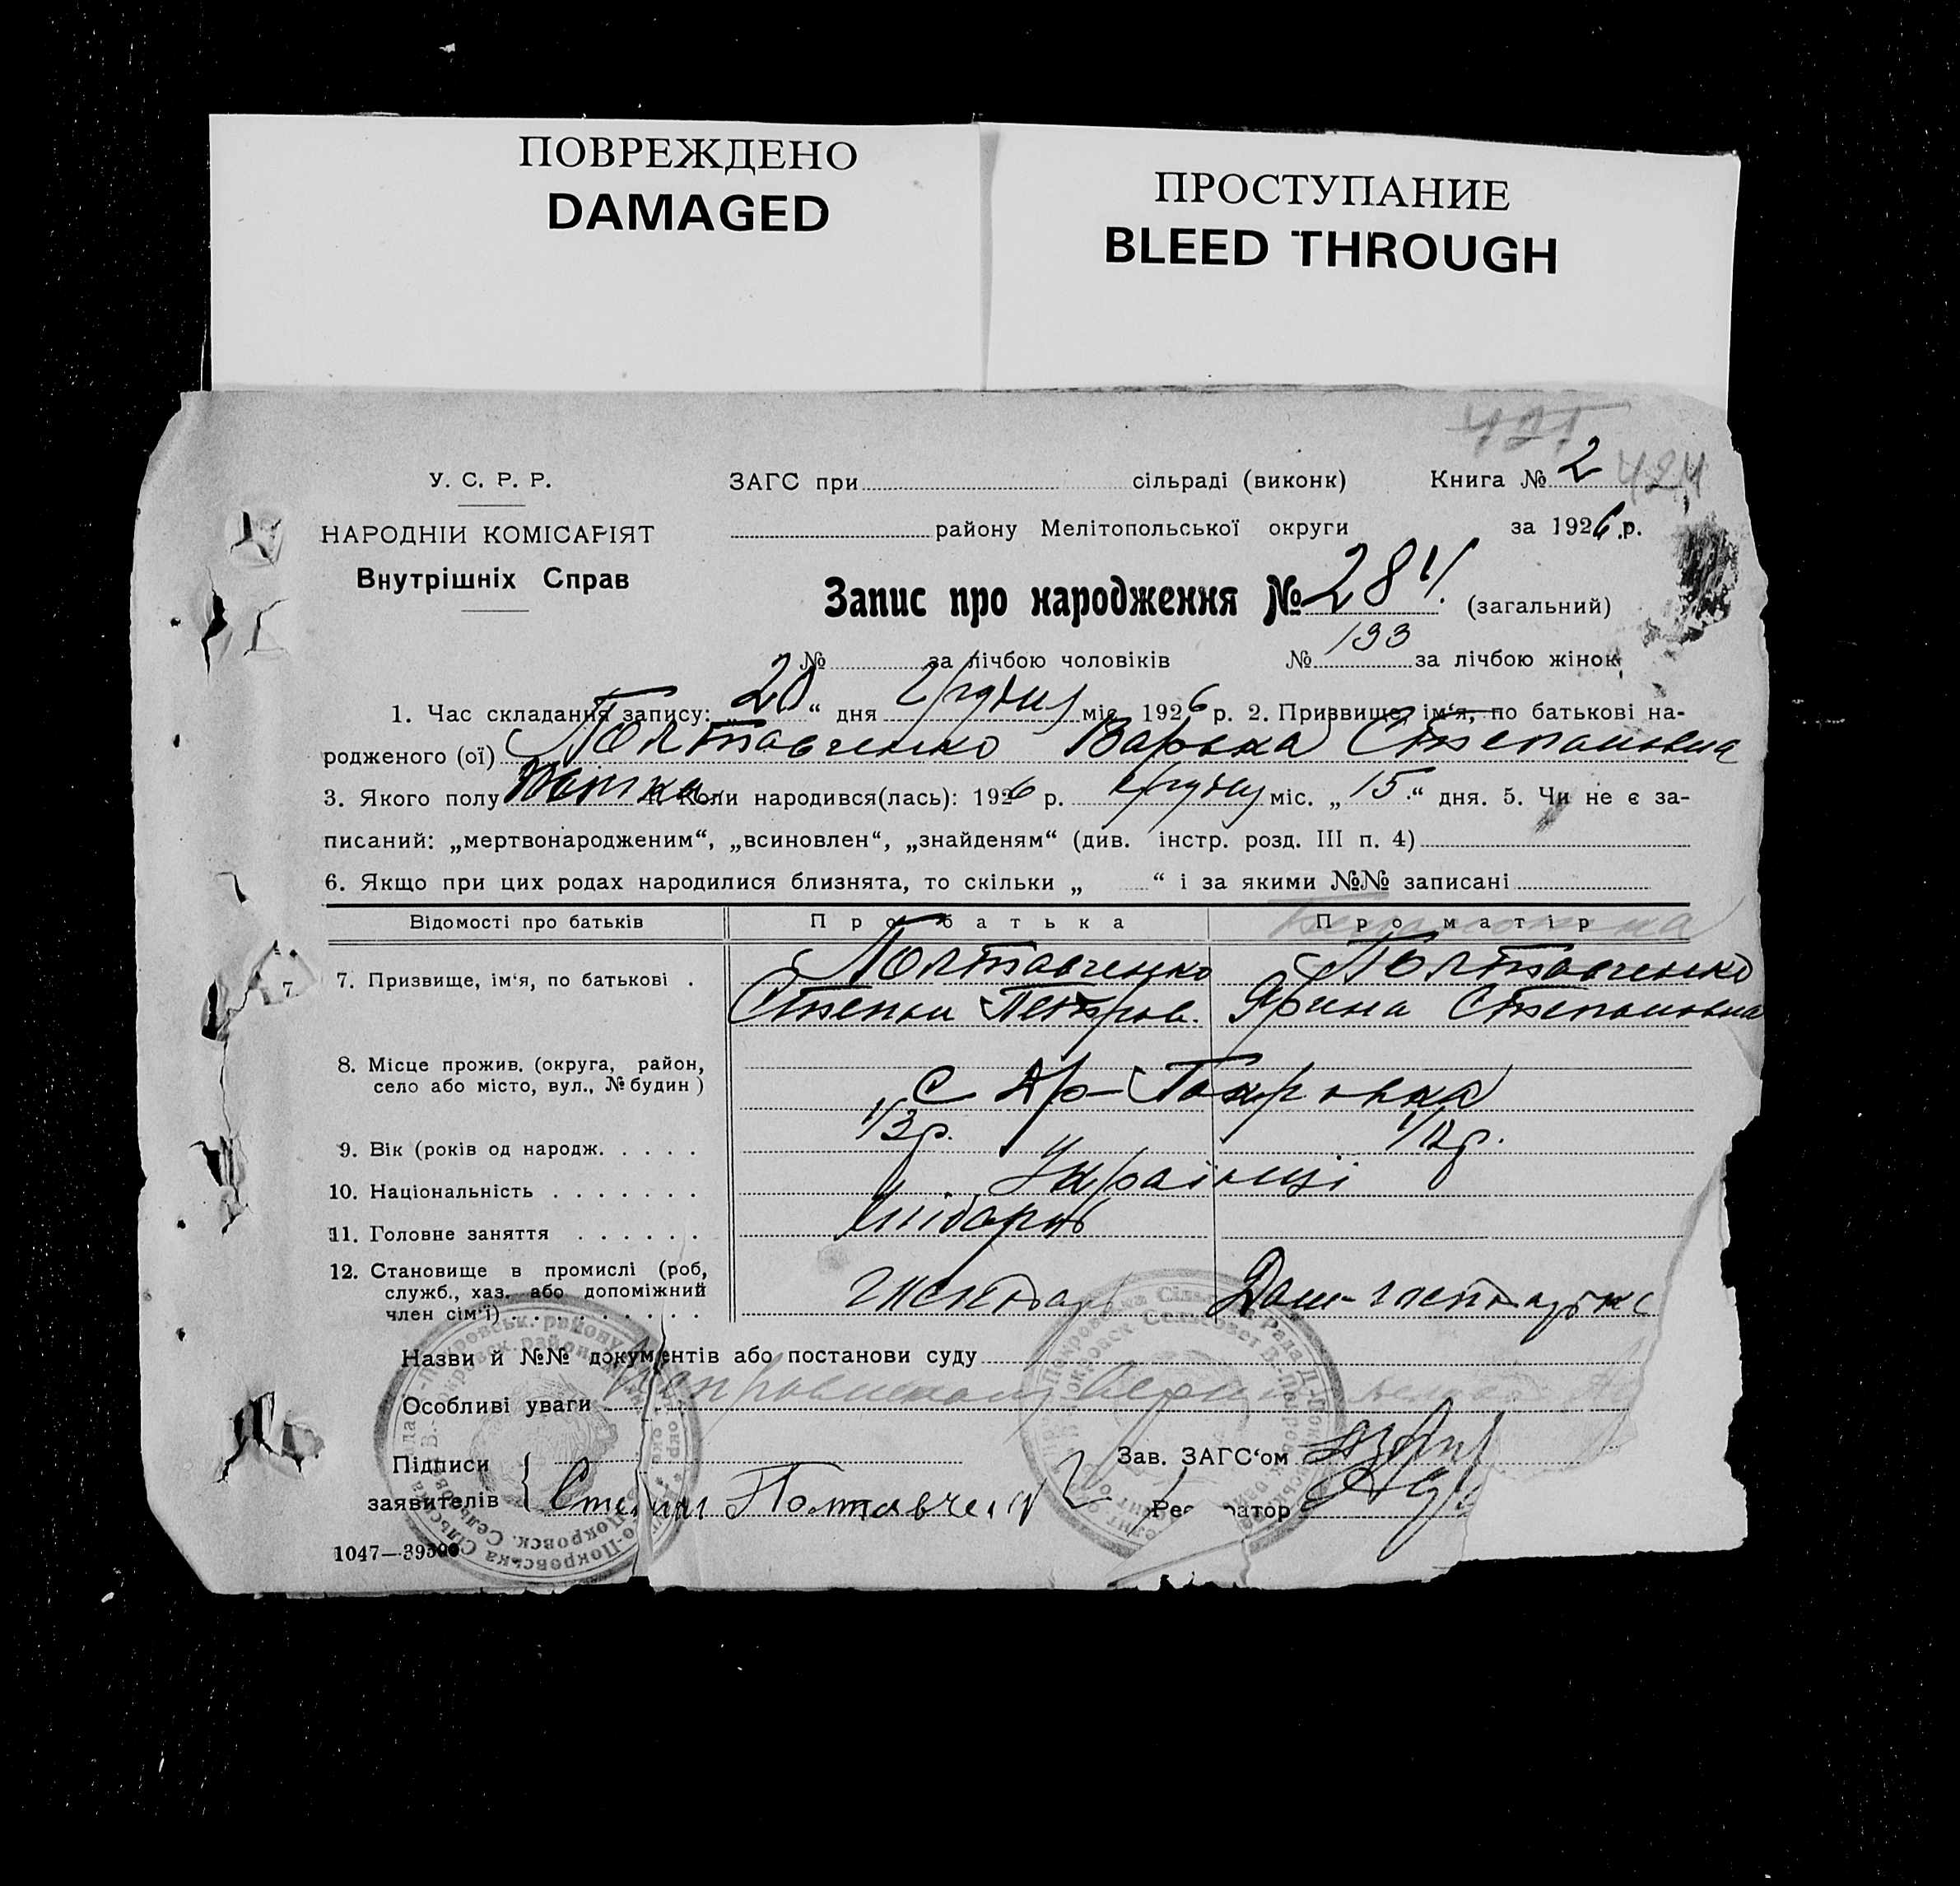 ПОВРЕЖДЕНО
DAMAGED
ПРОСТУПАНИЕ
BLEED THROUGH
424
У. С. Р. Р.
НАРОДНІЙ КОМІСАРІЯТ
Внутрішніх Справ
ЗАГС при сільраді (виконк) Книга № 2
району Мелітопольської округи за 1926 р.
Запис про народження № 284. (загальний)
№ за лічбою чоловіків № 133 за лічбою жінок
1. Час складання запису: „20“ дня грудня міс. 1926 р. 2. Призвище, ім‘я, по батькові на-
родженого (ої) Полтавченко Варька Степановна
3. Якого полу Жінка 4. Коли народився(лась): 1926 р. грудня міс. „15“ дня. 5. Чи не є за-
писаний: „мертвонародженим“, „всиновлен“, „знайденям“ (див. інстр. розд. III п. 4)
6. Якщо при цих родах народилися близнята, то скільки „ “ і за якими №№ записані
Відомості про батьків Про батька Про матір
7. Призвище, ім‘я, по батькові . Полтавченко Полтавченко
Степан Петров. Ярина Степановна
8. Місце прожив. (округа, район,
село або місто, вул., № будин)
с
9. Вік (років од народж. . . . . 43р. 42р.
10. Національність . . . . . . . Українці
11. Головне заняття . . . . . . Хлібороб
12. Становище в промислі (роб,
служб., хаз. або допоміжний
член сім‘ї) . . . . . . . . . . Господар Дом-господарка
Назви й №№ документів або постанови суду
Особливі уваги
Підписи
заявителів Степан Полтавченко
Зав. ЗАГС‘ом
Реєстратор
1047—39300